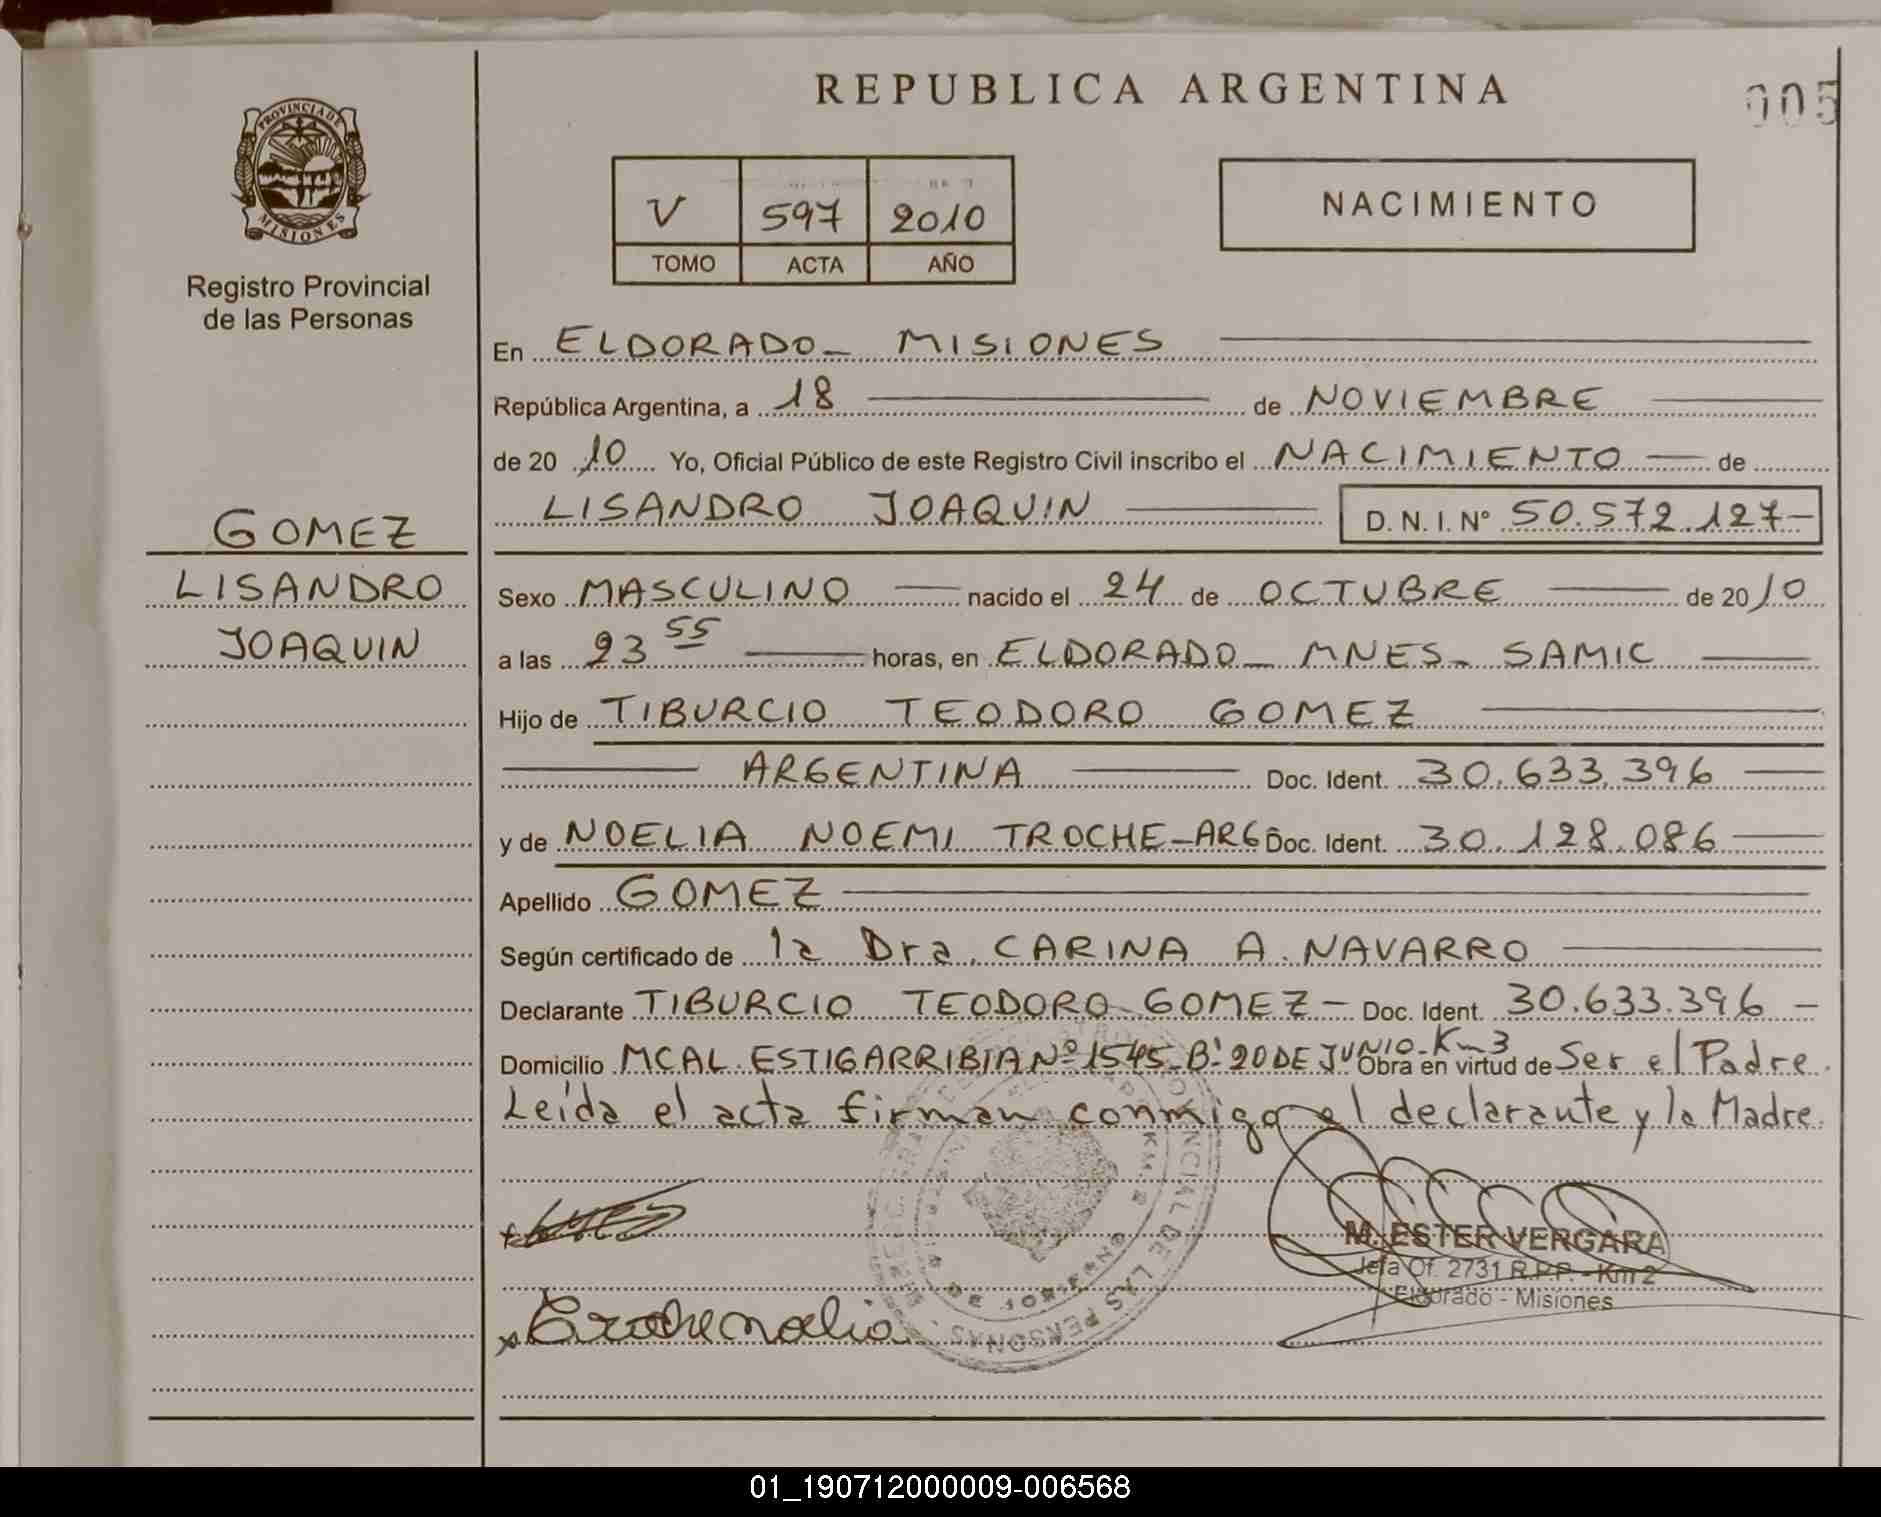 REPUBLICA ARGENTINA
005
PROVINCIA DE
MISIONES
Registro Provincial
de las Personas
V 597 2010
TOMO ACTA AÑO
NACIMIENTO
En ELDORADO - MISIONES
República Argentina, a 18 de NOVIEMBRE
de 20 10 Yo, Oficial Público de este Registro Civil inscribo el NACIMIENTO de
LISANDRO JOAQUIN D. N. I. N° 50.572.127-
GOMEZ
LISANDRO
JOAQUIN
Sexo MASCULINO nacido el 24 de OCTUBRE de 2010
a las 23 55 horas, en ELDORADO - MNES - SAMIC
Hijo de TIBURCIO TEODORO GOMEZ
ARGENTINA Doc. Ident. 30.633.396
y de NOELIA NOEMI TROCHE - ARG Doc. Ident. 30.128.086
Apellido GOMEZ
Según certificado de la Dra. CARINA A. NAVARRO
Declarante TIBURCIO TEODORO GOMEZ - Doc. Ident. 30.633.396 -
Domicilio MCAL. ESTIGARRIBIA Nº 1545 - Bº 20 DE JUNIO - Km 3 Obra en virtud de Ser el Padre.
Leída el acta firman conmigo el declarante y la Madre.
PROVINCIAL DE LAS PERSONAS
M. ESTER VERGARA
Jefa Of. 2731 R.P.P. - Km 2
Eldorado - Misiones
Troche Noelia
01_190712000009-006568